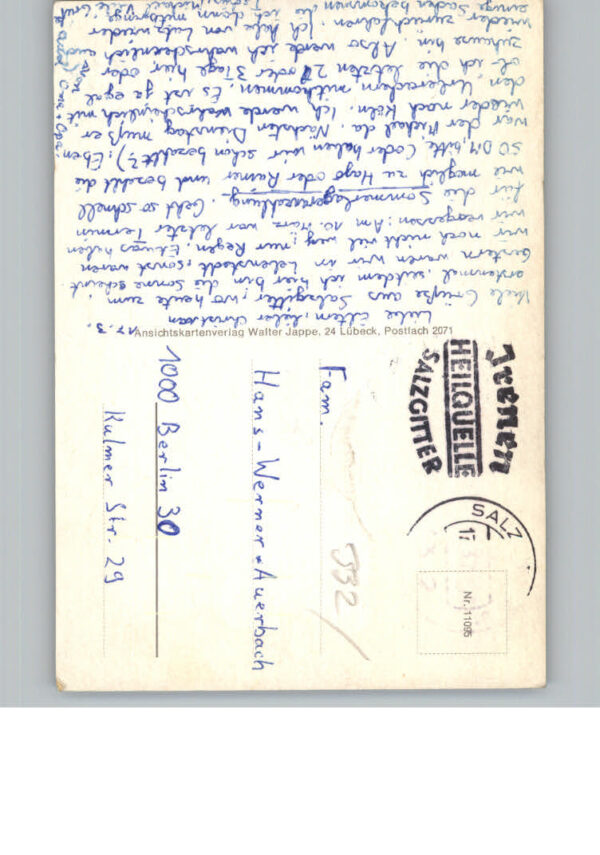 17.3.
Liebe Eltern, lieber Christian
Viele Grüße aus Salzgitter, wo heute zum
erstenmal, seitdem ich hier bin die Sonne scheint.
Gestern waren wir in Lebenstedt, sonst waren
wir noch nicht viel weg; nur Regen. Etwas haben
wir vergessen: Am 10. März war letzter Termin
für die Sommerlageranmeldung. Geht so schnell
wie möglich zu Hajo oder Rainer und bezahlt die
50 DM bitte (oder haben wir schon bezahlt?); Eben
war der Michael da. Nächsten Dienstag muß er
wieder nach Köln. Ich werde wahrscheinlich mit
den Urlaubern mitkommen. Es ist ja egal
ob ich die letzten 2 oder 3 Tage hier oder
zuhause bin. Also werde ich wahrscheinlich auch
wieder zurückfahren. Ich habe von Lutz wieder
einige Sachen bekommen die ich dann mitbringe
Ansichtskartenverlag Walter Jappe, 24 Lübeck, Postfach 2071
Fam.
Hans-Werner Auerbach
1000 Berlin 30
Kulmer Str. 29
332
HEILQUELLE
SALZGITTER
SALZ
17
Nr. 11095